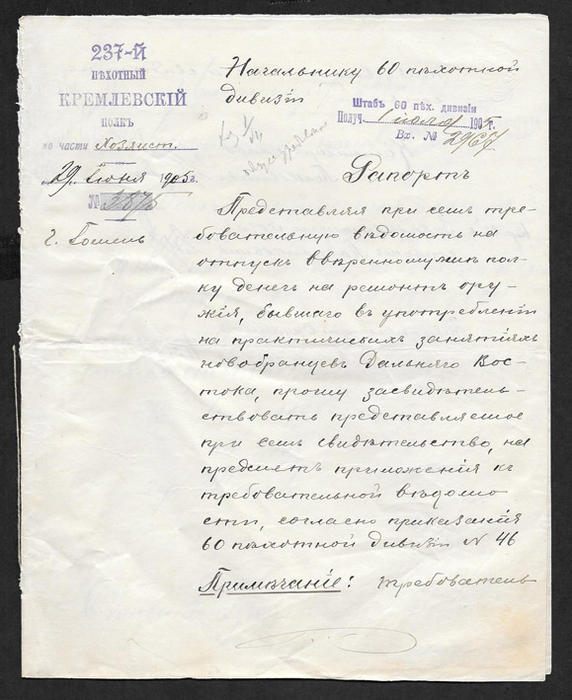 237-Й
ПѢХОТНЫЙ
КРЕМЛЕВСКІЙ
ПОЛКЪ
по части Хозяист.
29 Іюня 1905 г.
№ 3875
г. Гомель
Начальнику 60 пѣхотной
дивизіи
Штабъ 60 пѣх. дивизіи
Получ. 1 іюля 1905 г.
Вх. № 2967
Рапортъ
Представляя при семъ тре-
бовательную вѣдомость на
отпускъ ввѣренному мнѣ пол-
ку денегъ на ремонтъ ору-
жія, бывшаго въ употребленіи
на практическихъ занятіяхъ
новобранцевъ Дальняго Вос-
тока, прошу засвидѣтель-
ствовать представляемое
при семъ свидѣтельство, на
предметъ приложенія къ
требовательной вѣдомо
сти, согласно приказанія
60 пѣхотной дивизіи № 46
Примѣчаніе: требователь